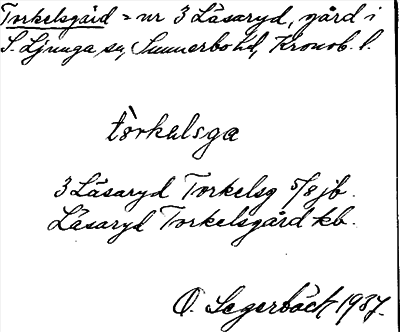 Torkelsgård = nr 3 Läsaryd, gård i
S. Ljunga sn, Sunnerbo hd, Kronob. l.
tòrkəlsga
3 Läsaryd Torkelsg 5/8 jb.
Läsaryd Torkelsgård kb.
O. Segerbäck 1937.